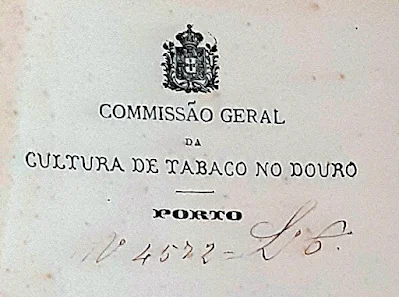 COMMISSÃO GERAL
DA
CULTURA DE TABACO NO DOURO
PORTO
Nº 4572 = Lº 6.